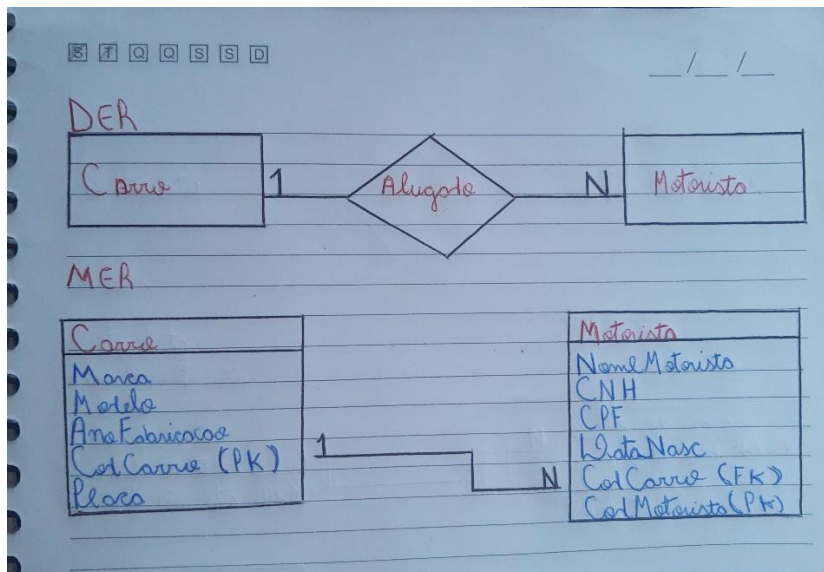 S T Q Q S S D
__/__/__
DER
Carro
1
Alugado
N
Motorista
MER
Carro
Marca
Modelo
AnoFabricacao
CodCarro (PK)
Placa
1
N
Motorista
NomeMotorista
CNH
CPF
DataNasc
CodCarro (FK)
CodMotorista (PK)